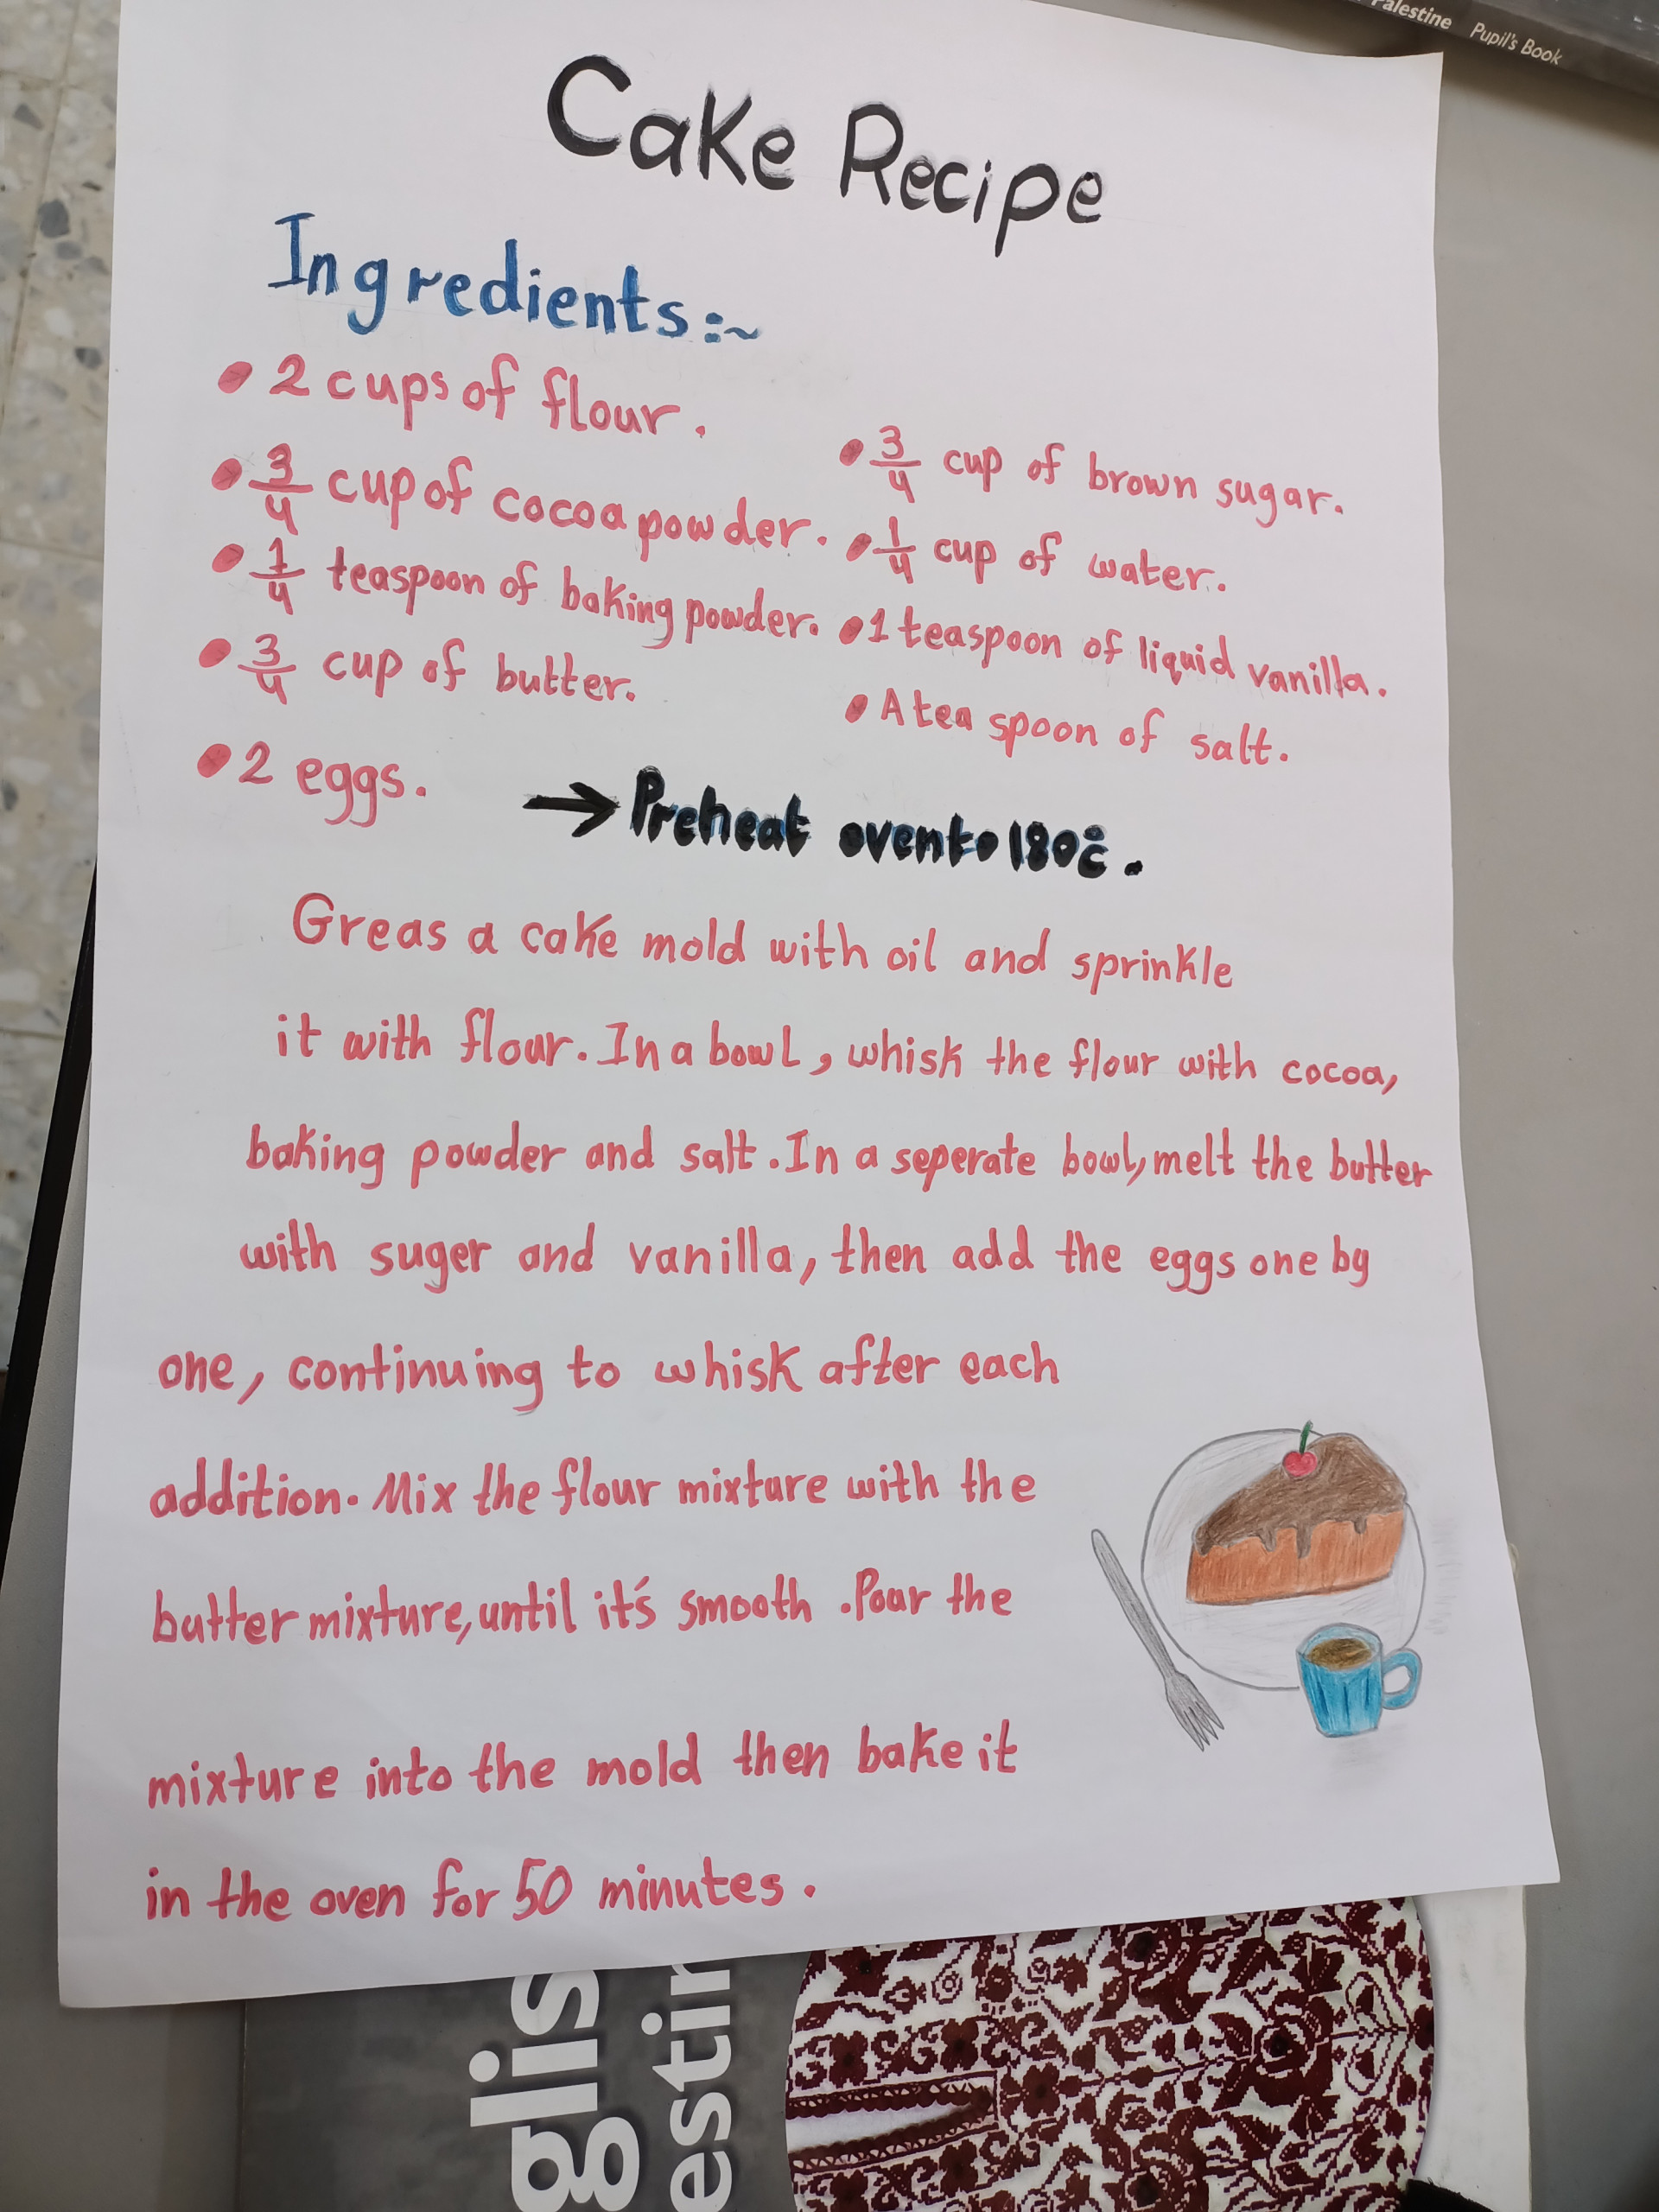 Palestine Pupil's Book
Cake Recipe
Ingredients:~
• 2 cups of flour.
• 3/4 cup of cocoa powder.
• 1/4 teaspoon of baking powder.
• 3/4 cup of butter.
• 2 eggs.
• 3/4 cup of brown sugar.
• 1/4 cup of water.
• 1 teaspoon of liquid vanilla.
• A tea spoon of salt.
→ Preheat oven to 180°c.
Greas a cake mold with oil and sprinkle
it with flour. In a bowl, whisk the flour with cocoa,
baking powder and salt. In a seperate bowl, melt the butter
with suger and vanilla, then add the eggs one by
one, continuing to whisk after each
addition. Mix the flour mixture with the
butter mixture, until it's smooth. Pour the
mixture into the mold then bake it
in the oven for 50 minutes.
glis
estin